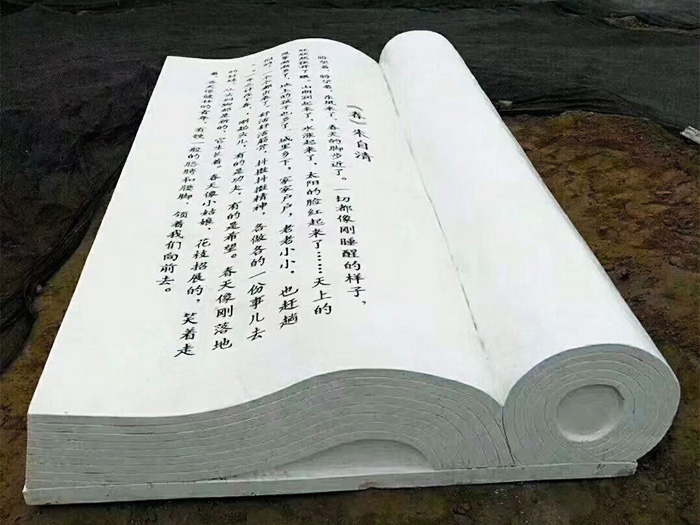 (春)朱自清
盼望着,盼望着,东风来了,春天的脚步近了。一切都像刚睡醒的样子,
欣欣然张开了眼。山朗润起来了,水涨起来了,太阳的脸红起来了……天上的
风筝渐渐多了,地上的孩子也多了。城里乡下,家家户户,老老小小,也赶趟
似的,一个个都出来了。舒活舒活筋骨,抖擞抖擞精神,各做各的一份事儿去
。“一年之计在于春”,刚起头儿,有的是功夫,有的是希望。春天像刚落地
的娃娃,从头到脚都是新的,它生长着。春天像小姑娘,花枝招展的,笑着走
着。春天像健壮的青年,有铁一般的胳膊和腰脚,领着我们向前去。